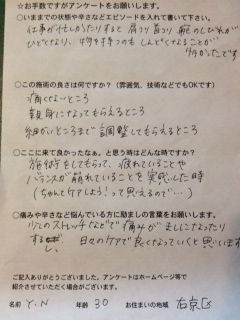 ☆お手数ですがアンケートをお願いします。
○いままでの状態や辛さなどエピソードを入れて書いて下さい。
仕事が忙しかったりすると肩こり首こり腕のしびれが
ひどくなり、物を持つのもしんどくなることが
多かったです
○この施術の良さは何ですか？（雰囲気、技術などでもOKです）
痛くないところ
親身になってもらえるところ
細かいところまで調整してもらえるところ
○ここに来て良かったなぁ。と思う時はどんな時ですか？
施術をしてもらって、疲れていることや
バランスが崩れていることを実感した時
（ちゃんとケアしよう！って思えるので…）
○痛みや辛さなど悩んでいる方に励ましの言葉をお願いします。
少しのストレッチなどで痛みがましになったり
するし、日々のケアで良くなっていくと思います
ご記入ありがとうございました。アンケートはホームページ等で
紹介させていただく場合がございます。
名前 Y.N 年齢 30 お住まいの地域 右京区